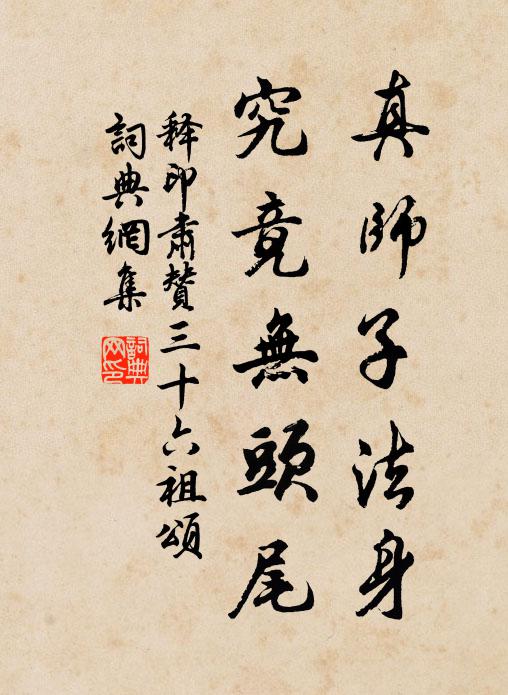 真師子法身
究竟無頭尾
释印肃贊三十六祖頌
詞典網集
詞典网印